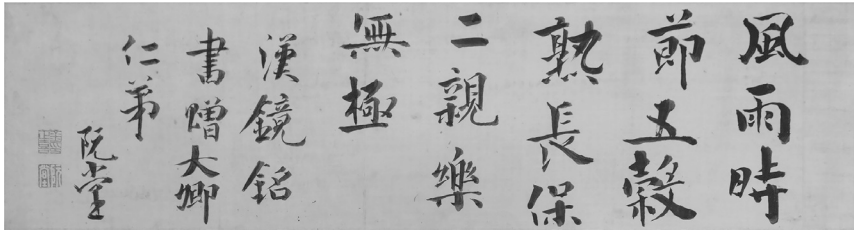 風雨時
節五穀
熟長保
二親樂
無極
漢鏡銘
書贈大卿
仁弟
阮堂